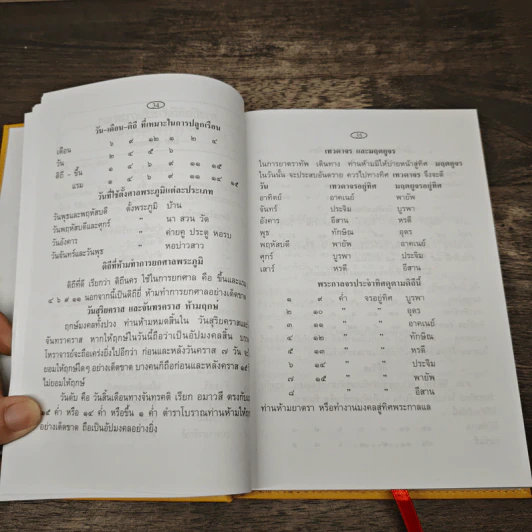 ๖๘
วัน-เดือน-ดิถี ที่เหมาะในการปลูกเรือน
เดือน ๖ ๙ ๑๒ ๑ ๒ ๔
วัน ๒ ๔ ๕ ๖
ดิถี - ขึ้น ๑ ๔ ๖ ๙ ๑๑ ๑๕
แรม ๑ ๔ ๖ ๙ ๑๑ ๑๔ ๑๕
วันที่ใช้ตั้งศาลพระภูมิแต่ละประเภท
วันพุธและพฤหัสบดี ตั้งพระภูมิ บ้าน
วันพฤหัสบดีและศุกร์ " นา สวน วัด
วันอังคาร " ค่ายคู ประตู หอรบ
วันจันทร์และวันพุธ " หอบ่าวสาว
ดิถีที่ห้ามทำการยกศาลพระภูมิ
ดิถีที่ดี เรียกว่า ดิถีนคร ใช้ในการยกศาล คือ ขึ้นและแรม
๔ ๖ ๙ ๑๑ นอกจากนี้เป็นดิถีผี ห้ามทำการยกศาลอย่างเด็ดขาด
วันสุริยคราส และจันทรคราส ห้ามฤกษ์
ฤกษ์มงคลทั้งปวง ท่านห้ามหมดสิ้นใน วันสุริยคราสและ
จันทรคราส หากให้ฤกษ์ในวันนี้ถือว่าเป็นอัปมงคลสิ้น
โหราจารย์จะถือเคร่งยิ่งไปอีกว่า ก่อนและหลังวันคราส ๗ วัน
ยอมให้ฤกษ์ใดๆ อย่างเด็ดขาด บางคนก็ถือก่อนและหลังคราส ๑๕
ไม่ยอมให้ฤกษ์
วันดับ คือ วันสิ้นเดือนทางจันทรคติ เรียก อมาวสี ตรงกับ
๑๕ ค่ำ หรือ ๑๔ ค่ำ หรือขึ้น ๑ ค่ำ ตำราโบราณท่านห้ามให้
อย่างเด็ดขาด ถือเป็นอัปมงคลอย่างยิ่ง
เทวดาจร และมฤตยูจร
ในการยาตราทัพ เดินทาง ท่านห้ามมิให้บ่ายหน้าสู่ทิศ มฤตยูจร
ในวันนั้น จะประสบอันตราย ควรไปทางทิศ เทวดาจร จึงจะดี
วัน เทวดาจรอยู่ทิศ มฤตยูจรอยู่ทิศ
อาทิตย์ อาคเนย์ พายัพ
จันทร์ ประจิม บูรพา
อังคาร อีสาน หรดี
พุธ ทักษิณ อุดร
พฤหัสบดี พายัพ อาคเนย์
ศุกร์ บูรพา ประจิม
เสาร์ หรดี อีสาน
พระกาลจรประจำทิศดูตามดิถีนี้
๑ ๙ ค่ำ จรอยู่ทิศ บูรพา
๒ ๑๐ " " อุดร
๓ ๑๑ " " อาคเนย์
๔ ๑๒ " " ทักษิณ
๕ ๑๓ " " หรดี
๖ ๑๔ " " ประจิม
๗ ๑๕ " " พายัพ
๘ " " อีสาน
ท่านห้ามยาตรา หรือทำงานมงคลสู่ทิศพระกาลแล